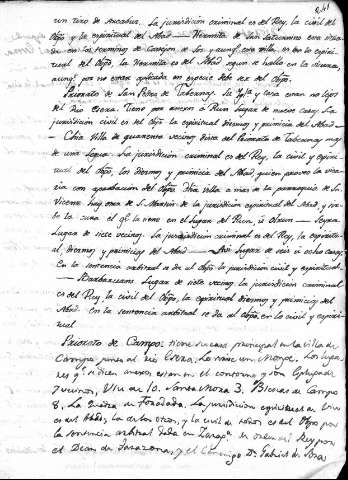 un tiro de Arcabuz. La jurisdiccion criminal es del Rey, la civil del
Obpo, y la espiritual del Abad — Hermita de San Saturnino era situa
da en los terminos de Campo, de los y aunq. con villa, es en lo espiri
tual del Obpo, la Hermita es del Abad segun se halla en la decima,
aunq. por no estar aplicada en especie debe ser del Obpo.
Priorato de San Pedro de Tabernas. Su Iga. y casa estan no lejos
del Rio Esera. Tiene por anexos a Run Lugar de nueve casas. La
jurisdicion civil es del Obpo la espiritual diezmos y primicia del Abad —
— Chia Villa de quarenta vecinos dista del Priorato de Tabernas mas
de una Legua. La jurisdiccion criminal es del Rey, la civil y espiri-
tual del Obpo, los diezmos y primicia del Abad, quien provee la vica
ria con aprobacion del Obpo. Dha villa a mas de la parroquia de S.
Vicente hay otra de S. Martin de la jurisdiccion espiritual del Abad, y
la cura el qe. la tiene en el Lugar del Run, — Seyra
Lugar de siete vecinos. La jurisdiccion criminal es del Rey, la espiritu-
al diezmos y primicias del Abad — Lugar de seis u ocho casas
En la sentencia arbitral se da al Obpo la jurisdiccion civil y espiritual —
— Barbaruens Lugar de siete vecinos, la jurisdiccion criminal
es del Rey, la civil del Obpo, la espiritual diezmos y primicias del
Abad. En la sentencia arbitral se da al Obpo. en lo civil y espiri-
tual
Priorato de Campo: tiene su casa principal en la villa de
Campo junto al rio Esera. La tiene un Monge. Los luga
res qe. se dicen anexos estan en el contorno y son Espluga de
7 vecinos, Viu de 10. Santa Mora 3. Biescas de Campo
8, La de Foradada. La jurisdiccion espiritual en unos
es del Abad, la de los otros, y la civil de todos es del Obpo por
la sentencia arbitral dada en Zaragª.
el Dean de Tarazona, y el Canonigo Dr. Gabriel de Sora